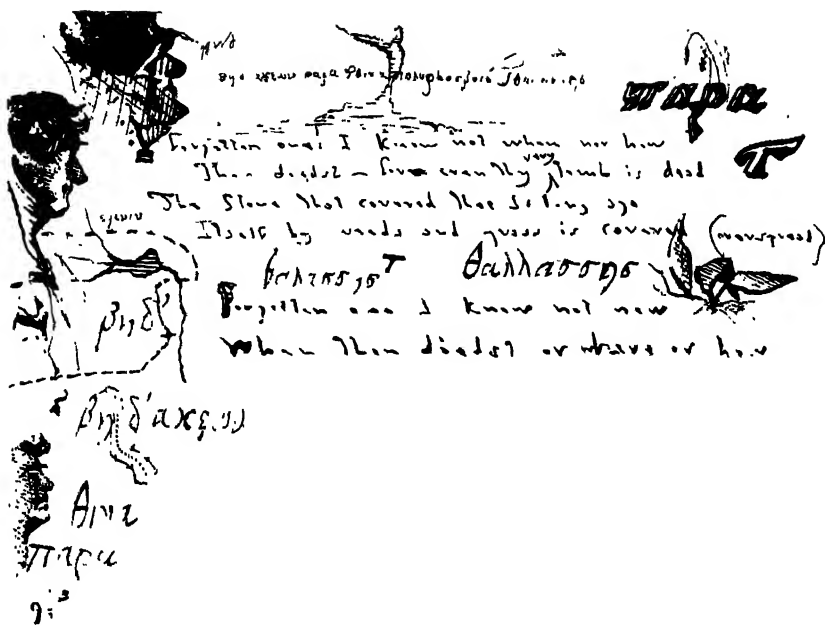 παρα
Forgotten one! I know not when nor how
Thou diedst – for even thy very tomb is dead
T
The Stone that covered thee so long ago
Itself by weeds and grass is covered (overspread)
θαλασσης
Forgotten one I know not now
When Thou diedst or where or how
βηδ'
βηδ'
θινα
παρα